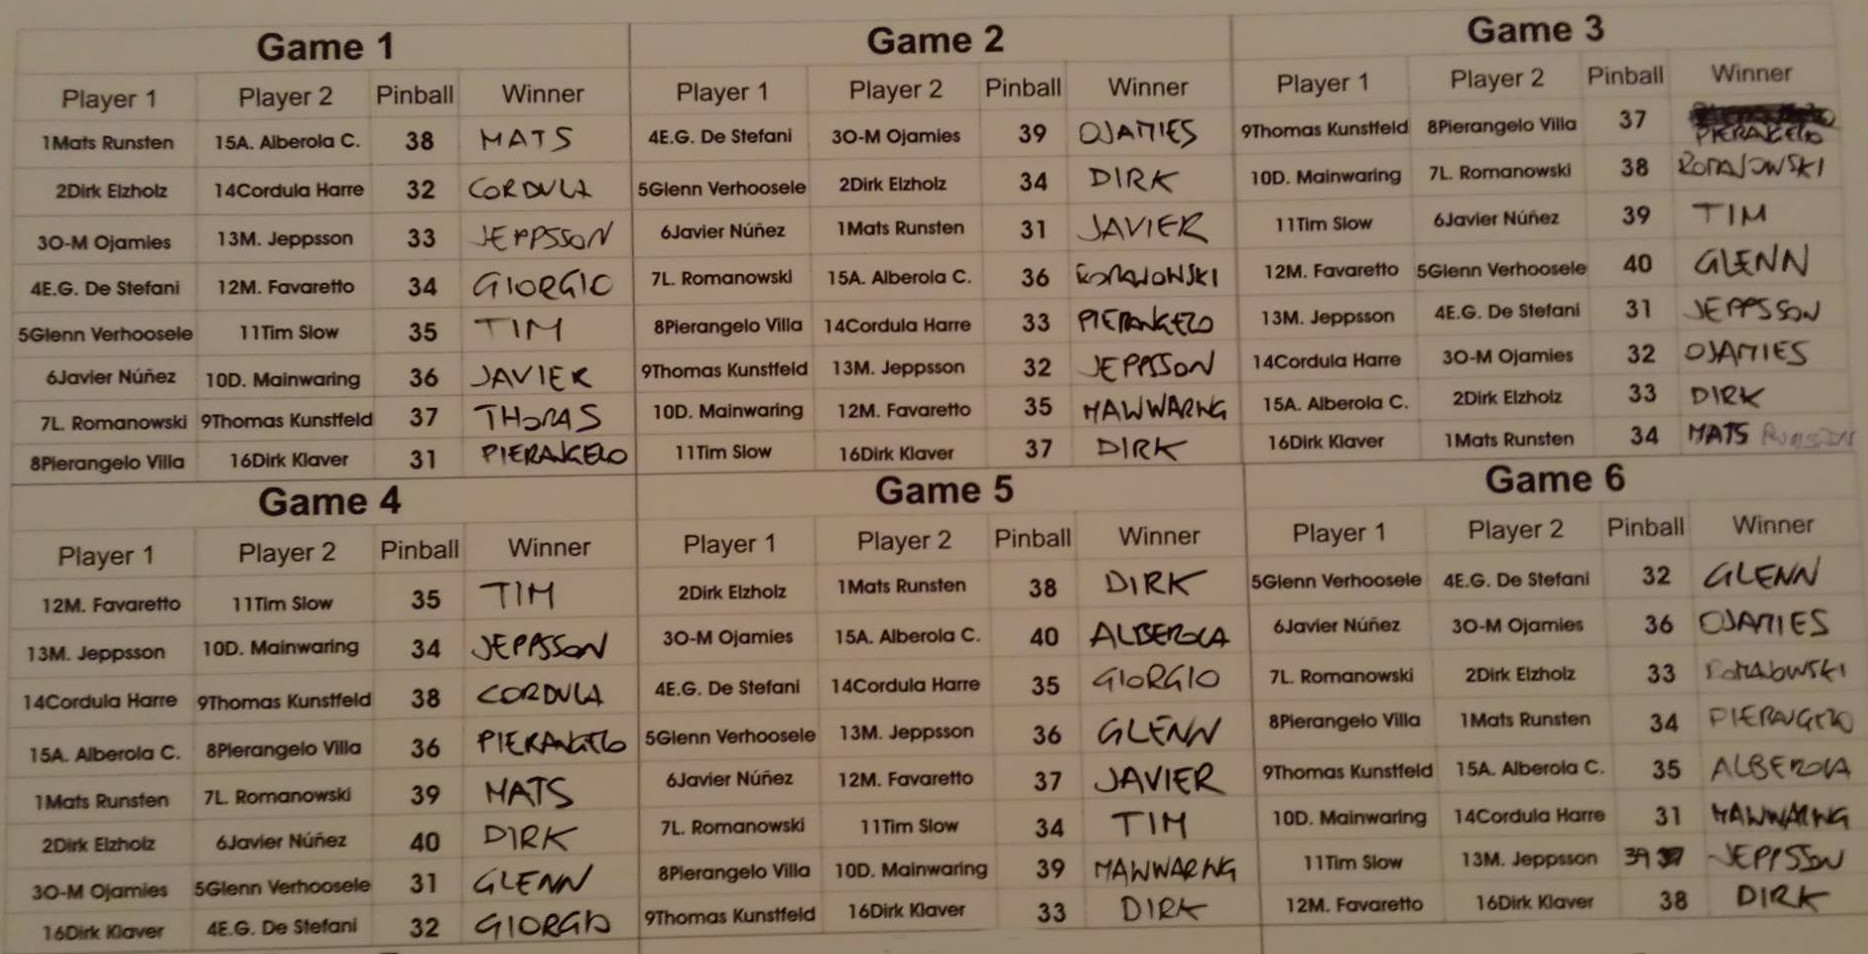 Game 1
Player 1 Player 2 Pinball Winner
1Mats Runsten 15A. Alberola C. 38 MATS
2Dirk Elzholz 14Cordula Harre 32 CORDULA
3O-M Ojamies 13M. Jeppsson 33 JEPPSSON
4E.G. De Stefani 12M. Favaretto 34 GIORGIO
5Glenn Verhoosele 11Tim Slow 35 TIM
6Javier Núñez 10D. Mainwaring 36 JAVIER
7L. Romanowski 9Thomas Kunstfeld 37 THOMAS
8Pierangelo Villa 16Dirk Klaver 31 PIERANGELO
Game 2
Player 1 Player 2 Pinball Winner
4E.G. De Stefani 3O-M Ojamies 39 OJAMIES
5Glenn Verhoosele 2Dirk Elzholz 34 DIRK
6Javier Núñez 1Mats Runsten 31 JAVIER
7L. Romanowski 15A. Alberola C. 36 ROMANOWSKI
8Pierangelo Villa 14Cordula Harre 33 PIERANGELO
9Thomas Kunstfeld 13M. Jeppsson 32 JEPPSSON
10D. Mainwaring 12M. Favaretto 35 MAWWARNG
11Tim Slow 16Dirk Klaver 37 DIRK
Game 3
Player 1 Player 2 Pinball Winner
9Thomas Kunstfeld 8Pierangelo Villa 37 PIERANGELO
10D. Mainwaring 7L. Romanowski 38 ROMANOWSKI
11Tim Slow 6Javier Núñez 39 TIM
12M. Favaretto 5Glenn Verhoosele 40 GLENN
13M. Jeppsson 4E.G. De Stefani 31 JEPPSSON
14Cordula Harre 3O-M Ojamies 32 OJAMIES
15A. Alberola C. 2Dirk Elzholz 33 DIRK
16Dirk Klaver 1Mats Runsten 34 MATS RUNSTEN
Game 4
Player 1 Player 2 Pinball Winner
12M. Favaretto 11Tim Slow 35 TIM
13M. Jeppsson 10D. Mainwaring 34 JEPPSSON
14Cordula Harre 9Thomas Kunstfeld 38 CORDULA
15A. Alberola C. 8Pierangelo Villa 36 PIERANGELO
1Mats Runsten 7L. Romanowski 39 MATS
2Dirk Elzholz 6Javier Núñez 40 DIRK
3O-M Ojamies 5Glenn Verhoosele 31 GLENN
16Dirk Klaver 4E.G. De Stefani 32 GIORGIO
Game 5
Player 1 Player 2 Pinball Winner
2Dirk Elzholz 1Mats Runsten 38 DIRK
3O-M Ojamies 15A. Alberola C. 40 ALBEROLA
4E.G. De Stefani 14Cordula Harre 35 GIORGIO
5Glenn Verhoosele 13M. Jeppsson 36 GLENN
6Javier Núñez 12M. Favaretto 37 JAVIER
7L. Romanowski 11Tim Slow 34 TIM
8Pierangelo Villa 10D. Mainwaring 39 MAWWARNG
9Thomas Kunstfeld 16Dirk Klaver 33 DIRK
Game 6
Player 1 Player 2 Pinball Winner
5Glenn Verhoosele 4E.G. De Stefani 32 GLENN
6Javier Núñez 3O-M Ojamies 36 OJAMIES
7L. Romanowski 2Dirk Elzholz 33 ROMANOWSKI
8Pierangelo Villa 1Mats Runsten 34 PIERANGELO
9Thomas Kunstfeld 15A. Alberola C. 35 ALBEROLA
10D. Mainwaring 14Cordula Harre 31 MAWWARNG
11Tim Slow 13M. Jeppsson 39 JEPPSSON
12M. Favaretto 16Dirk Klaver 38 DIRK